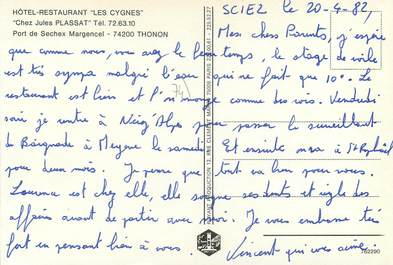 HÔTEL-RESTAURANT "LES CYGNES"
"Chez Jules PLASSAT" Tél. 72.63.10
Port de Sechex Margencel - 74200 THONON
SCIEZ le 20-4-82,
Mes chers Parents, j'espère
que comme nous, vous avez le beau temps, le stage de voile
est très sympa malgré l'eau qui ne fait que 10°. Le
restaurant est bien et l'on mange comme des rois. Vendredi
soir je rentre à Alpes pour passer le surveillant
de Baignade à Meyzne le samedi. Et ensuite à St Raphaël
pour deux mois. Je pense que tout va bien pour vous.
Laurence est chez elle, elle soigne ses dents et règle des
affaires avant de partir avec moi. Je vous embrasse très
fort en pensant bien à vous. Vincent qui vous aime.
74
762290